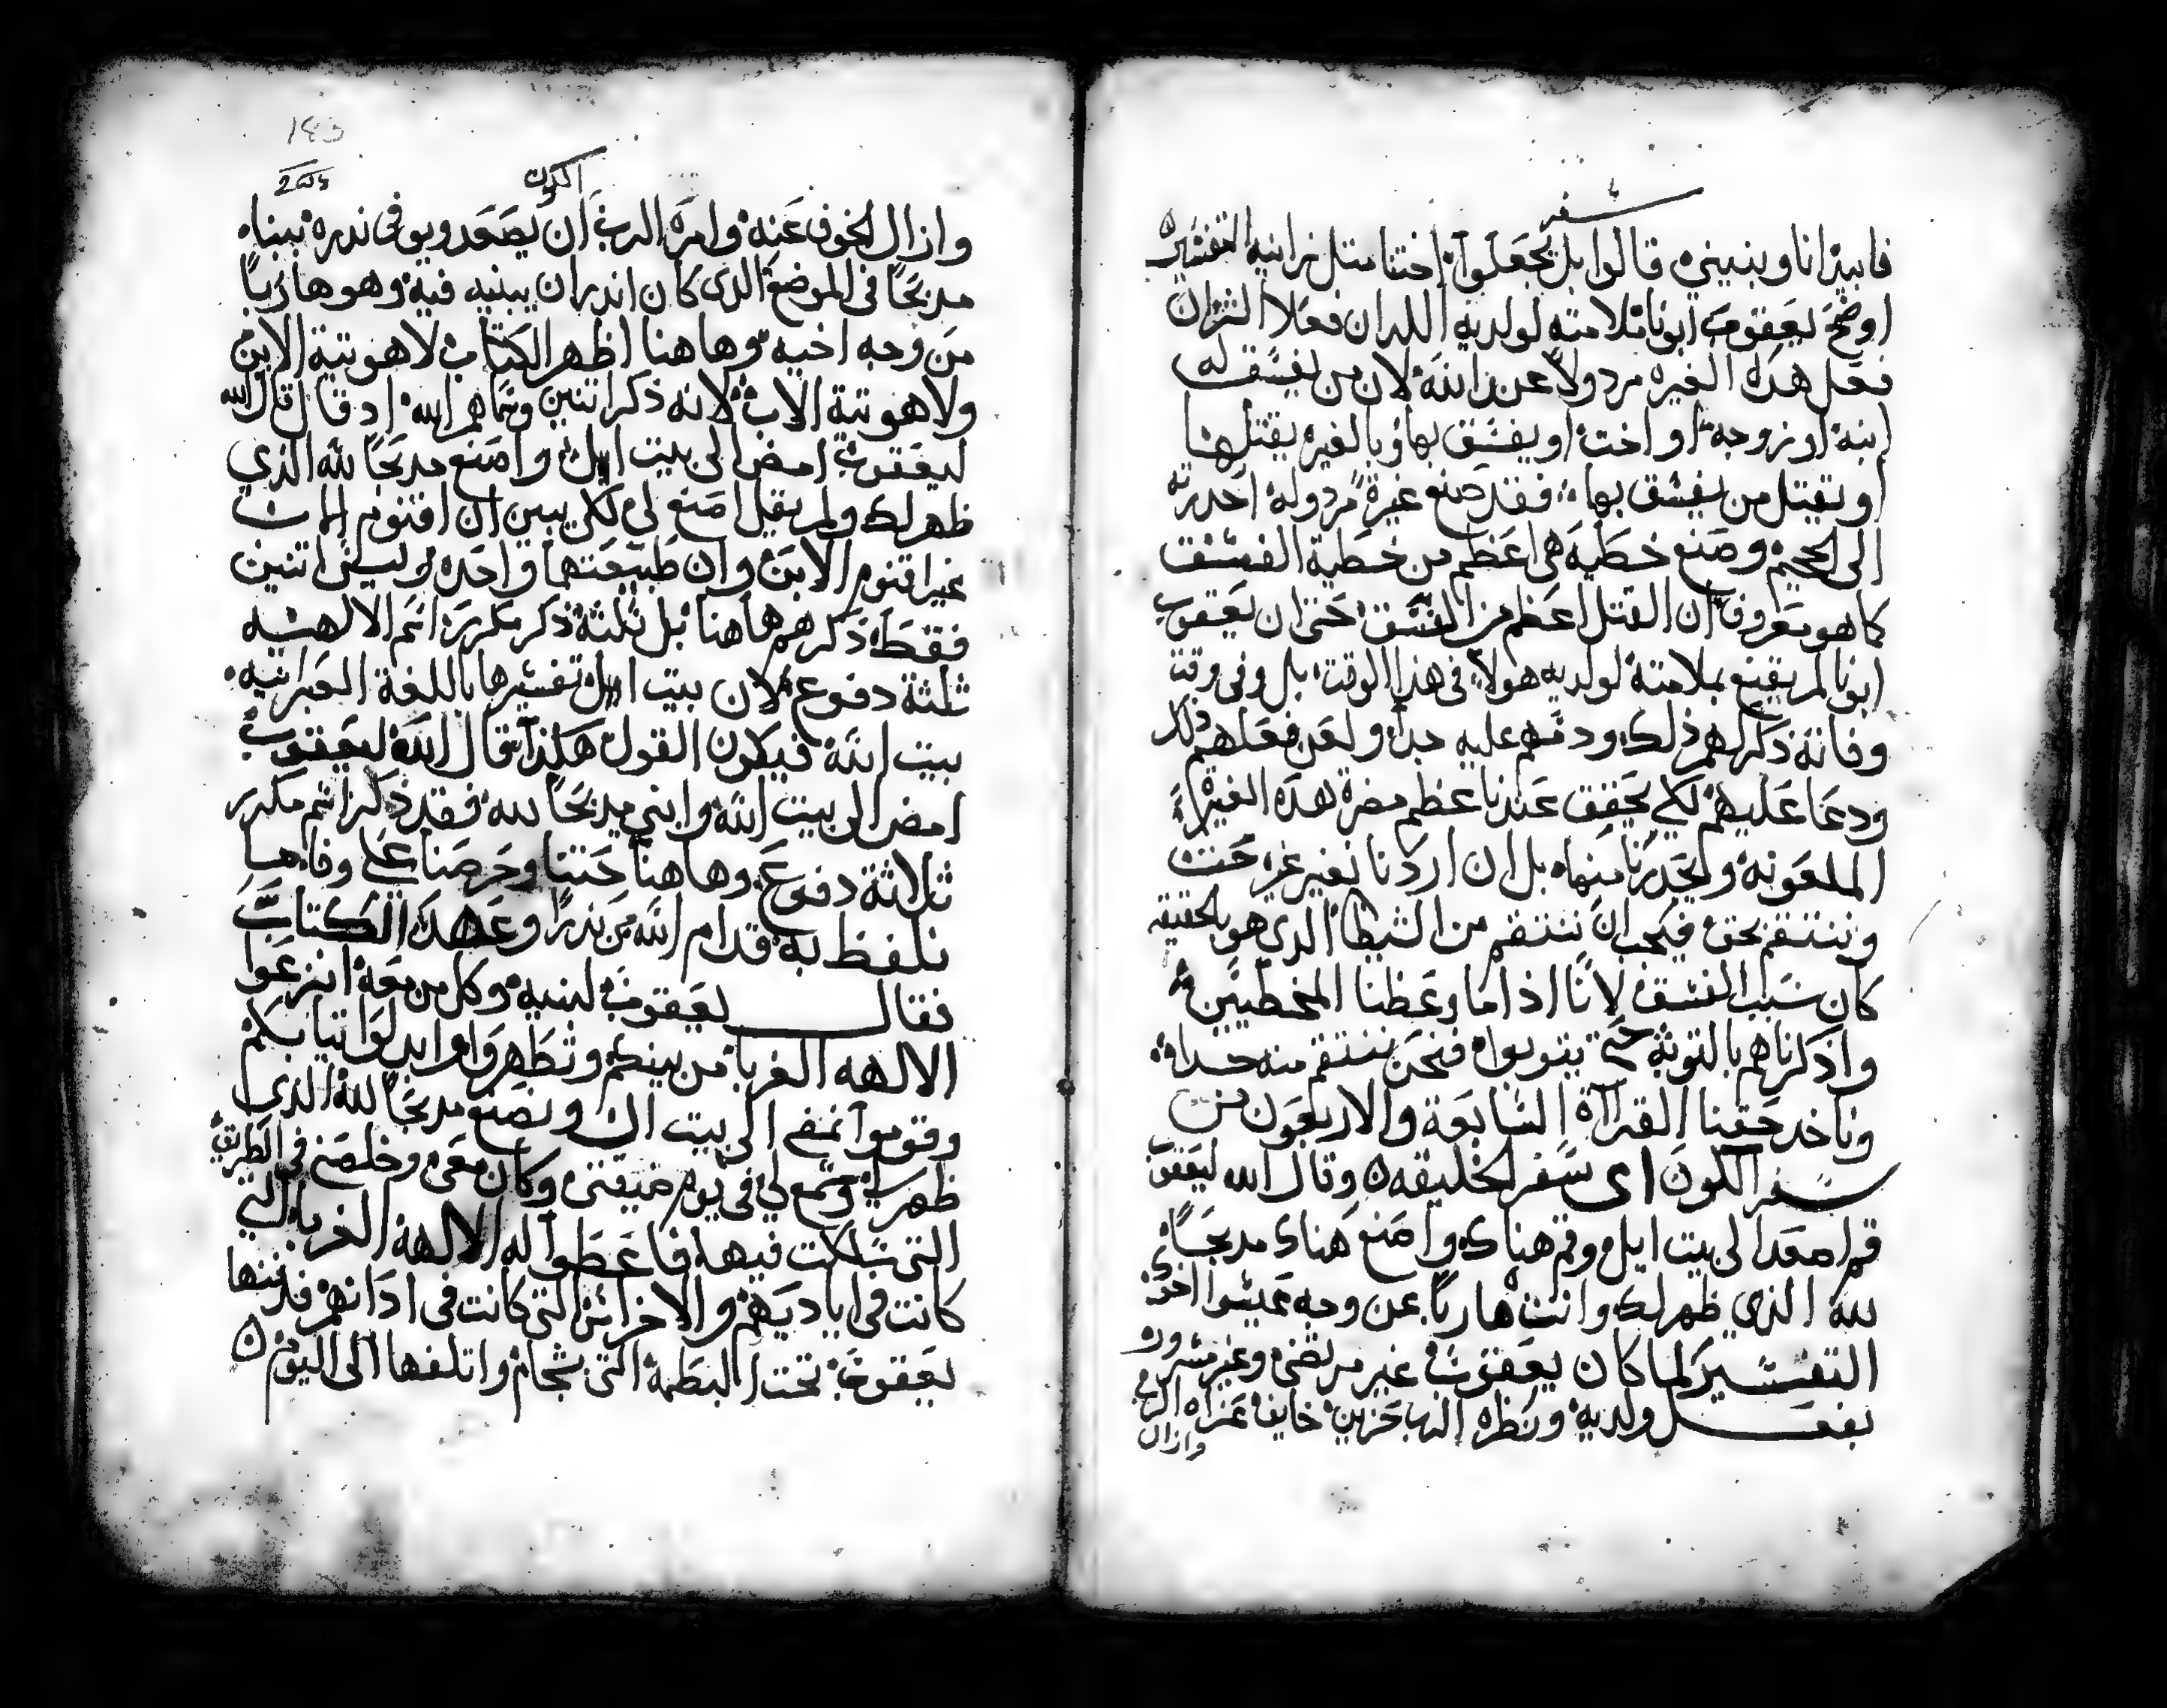 سفر
فابيد انا وبنيتي قالوا بل يجعلوا اختنا متل زانيه التفسير
اوضح يعقوب ابونا ملامته لولديه اللدان فعلا الشر ان
فعل هذه الغيره مردولا عند الله لان من يفسق له
ابنه او زوجه او اخت او يفسق بها وبالغيره يقتلها
او يقتل من يفسق بها فقد صنع غيرة مردوله احدرته
الى الجحيم وصنع خطيه هى اعظم من خطية الفسق
كما هو معروفا ان القتل اعظم من الفسق حتى ان يعقوب
ابونا لم يقنع بملامتة لولديه هولاء فى هذا الوقت بل وفى وقت
وفاتة ذكر لهم ذلك ودمهم عليه جدا ولعن فعلهم ذلك
ودعا عليهم لكي يحقق عندنا عظم مضرة هذه الغيرة
الملعونه ويحدرنا منها بل ان اردنا نغير غيره حسنه
وننتقم بحق فيجب ان ننتقم من الشيطان الدى هو بالحقيقه
كان سبب الفسق لاننا اذا ما وعظنا المخطيين
واذكرناهم بالتوبة حتى يتوبوا فنحن ننتقم منه جدا
وناخد حقنا القراة السابعة والاربعون من
سفر الكون اى سفر الخليقه وقال الله ليعقوب
قم اصعد الى بيت ايل وقم هناك واصنع هناك مدبحًا
لله الذي ظهر لك وانت هاربًا من وجه عيسوا اخوك
التفسير لما كان يعقوب غير مرتضى وغير مسرور
بفعل ولديه ونظره الرب حزين خايف عزاه الرب
وازال
الكون
وازال الخوف عنه وامره الرب ان يصعد ويوفى ندره ببناه
مدبحًا فى الموضع الدى كان اندر ان يبنيه فيه وهو هاربًا
من وجه اخيه وها هنا اظهر الكتاب لاهوتية الابن
ولاهوتية الاب لانه ذكر اتنين وسماهم الله اد قال قال الله
ليعقوب امض الى بيت ايل واصنع مدبحًا لله الذي
ظهر لك ولم يقل اصنع لي لكي يبين ان اقنوم الاب
غير اقنوم الابن وان طبيعتهما واحده وليس اتنين
فقط ذكرهم هاهنا بل تلتة ذكر مكرر اسم الالهيه
ثلثة دفوع لان بيت ايل تفسيرها باللغة العبرانيه
بيت الله فيكون القول هكذا قال الله ليعقوب
امض الى بيت الله وابني مدبحًا لله فقد ذكر اسم مكرر
ثلاثة دفوع وهاهنا حتنا وحرصنا على وفا ما
نلفظ به قدام الله من ندرًا وعهدا الكتاب
فقال يعقوب لبنيه وكل من معه انزعوا
الالهه الغربا من بينكم وتطهروا وابدلوا تيابكم
وقوموا نمضى الى بيت ايل ونصنع مدبحًا لله الدى
ظهر لي وسمع لي فى يوم ضيقتى وكان معى وخلصنى فى الطريق
التى سلكت فيها فاعطوا له الالهة الغربا التى
كانت فى اياديهم والاخراص التى كانت فى ادانهم فدفنها
يعقوب تحت البطمة التى بشجام واتلفها الى اليوم